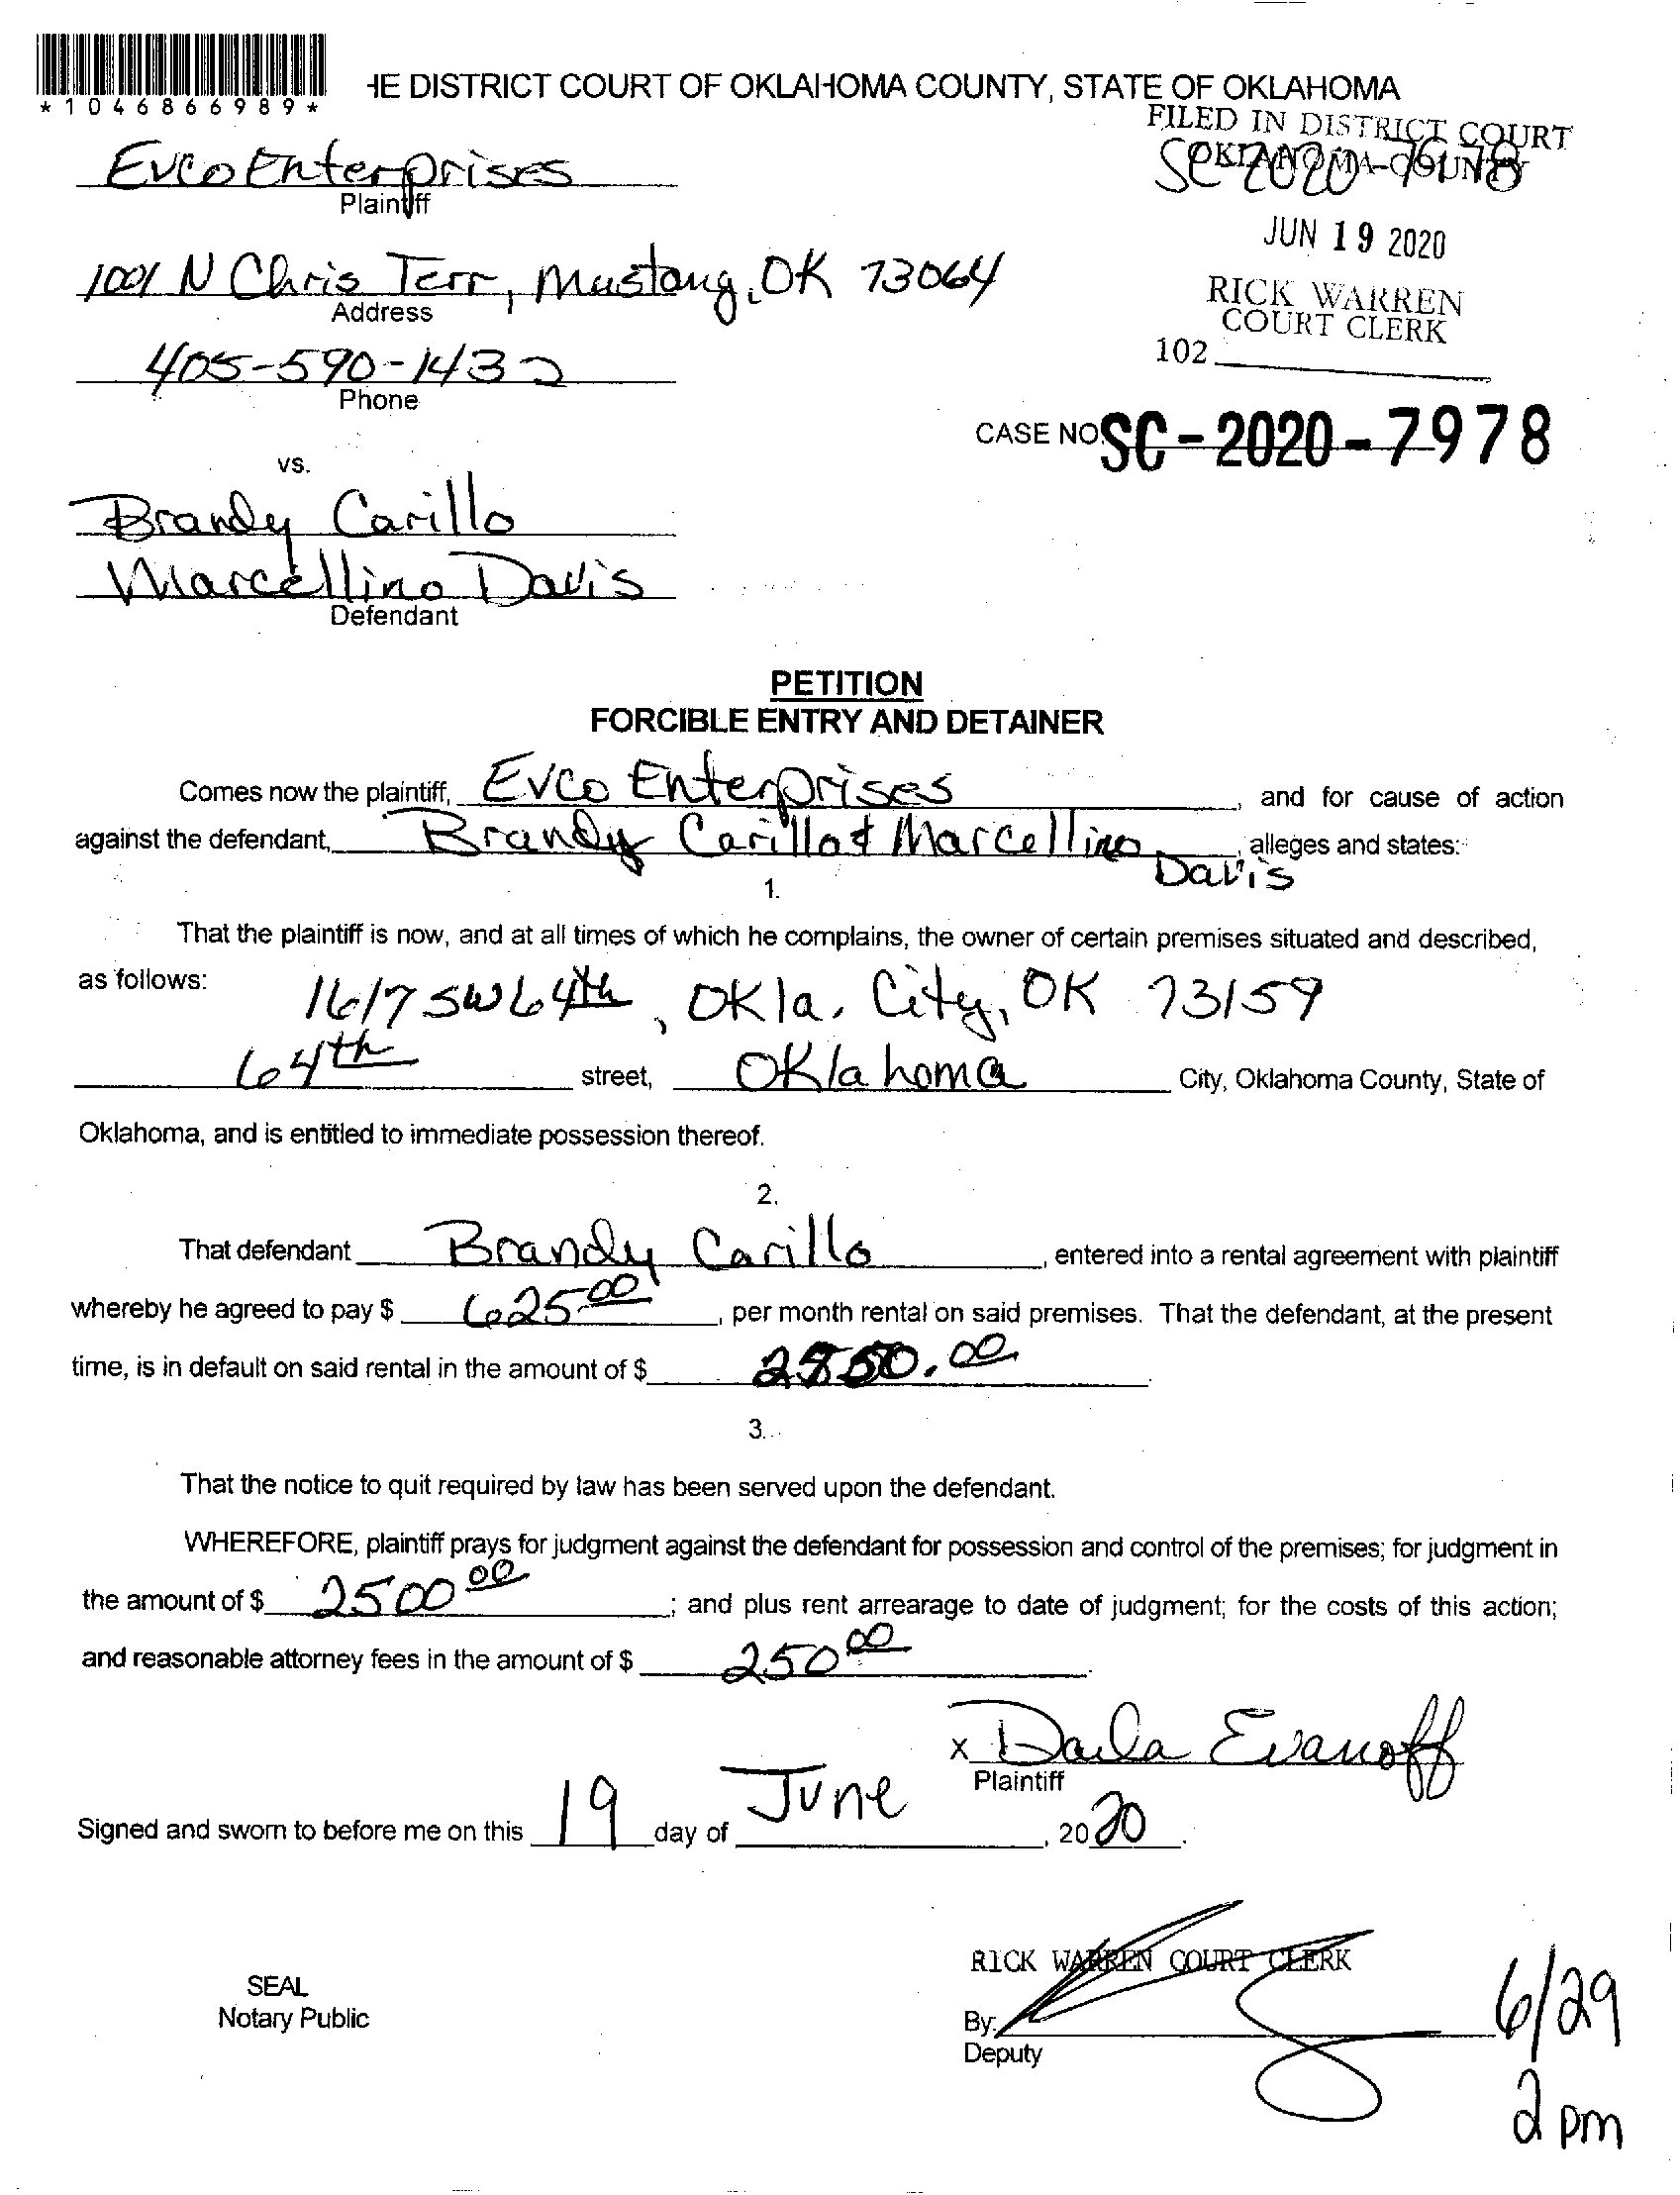 *1046866989*
HE DISTRICT COURT OF OKLAHOMA COUNTY, STATE OF OKLAHOMA
FILED IN DISTRICT COURT
OKLAHOMA COUNTY
SC-2020-7978
Evco Enterprises
Plaintiff
JUN 19 2020
1001 N Chris Terr, Mustang, OK 73064
Address
RICK WARREN
COURT CLERK
102
405-590-1432
Phone
CASE NO. SC-2020-7978
vs.
Brandy Carillo
Marcellino Davis
Defendant
PETITION
FORCIBLE ENTRY AND DETAINER
Comes now the plaintiff, Evco Enterprises, and for cause of action
against the defendant, Brandy Carillo & Marcellino Davis, alleges and states:
1.
That the plaintiff is now, and at all times of which he complains, the owner of certain premises situated and described,
as follows: 1617 SW 64th, Okla. City, OK 73159
64th street, Oklahoma City, Oklahoma County, State of
Oklahoma, and is entitled to immediate possession thereof.
2.
That defendant Brandy Carillo, entered into a rental agreement with plaintiff
whereby he agreed to pay $ 625.00, per month rental on said premises. That the defendant, at the present
time, is in default on said rental in the amount of $
3.
That the notice to quit required by law has been served upon the defendant.
WHEREFORE, plaintiff prays for judgment against the defendant for possession and control of the premises; for judgment in
the amount of $ 2500 00; and plus rent arrearage to date of judgment; for the costs of this action;
and reasonable attorney fees in the amount of $ 250 00.
x Darla Evanoff
Plaintiff
Signed and sworn to before me on this 19 day of June, 2020.
RICK WARREN COURT CLERK
SEAL
Notary Public
By:
Deputy
6/29
2 pm